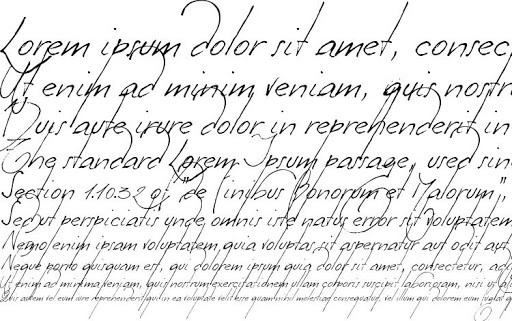 Lorem ipsum dolor sit amet, consec
Ut enim ad minim veniam, quis nostr
Duis aute irure dolor in reprehenderit in
The standard Lorem Ipsum passage, used sin
Section 1.10.32 of "de Finibus Bonorum et Malorum,"
Sed ut perspiciatis unde omnis iste natus error sit voluptatem
Nemo enim ipsam voluptatem quia voluptas sit aspernatur aut odit aut
Neque porro quisquam est, qui dolorem ipsum quia dolor sit amet, consectetur, adi
Ut enim ad minima veniam, quis nostrum exercitationem ullam corporis suscipit laboriosam, nisi ut al
Quis autem vel eum iure reprehenderit qui in ea voluptate velit esse quam nihil molestiae consequatur, vel illum qui dolorem eum fugiat